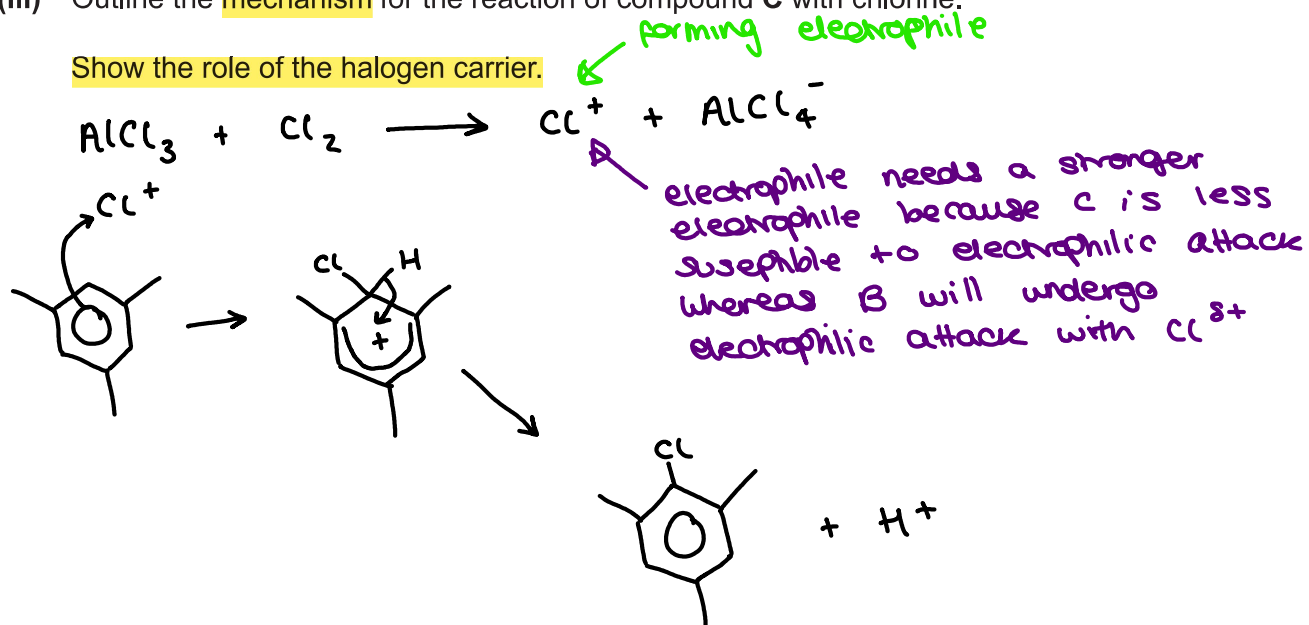 (iii) Outline the mechanism for the reaction of compound C with chlorine.
forming electrophile
Show the role of the halogen carrier.
AlCl₃ + Cl₂ ⟶ Cl⁺ + AlCl₄⁻
electrophile needs a stronger
electrophile because C is less
suseptible to electrophilic attack
whereas B will undergo
electrophilic attack with Cl δ+
Cl⁺
Cl H
+
Cl
+ H+